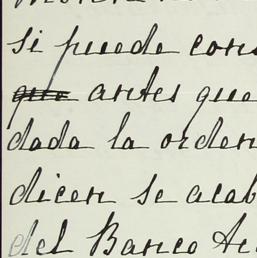 si puede cons
~~que~~ antes que
dada la orden
dicen se acab
del Banco